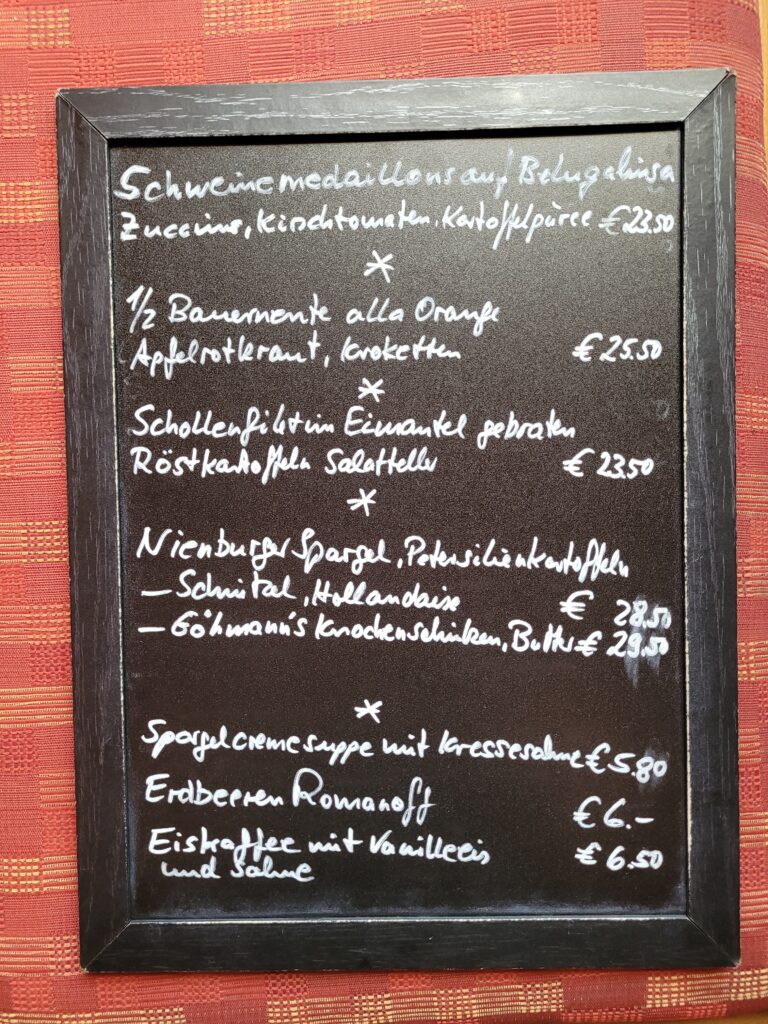 Schweinemedaillons auf Belugalinsa
Zuccini, Kirschtomaten, Kartoffelpüree € 23.50
*
1/2 Bauernente alla Orange
Apfelrotkraut, Kroketten € 25.50
*
Schollenfilet im Eimantel gebraten
Röstkartoffeln Salatteller € 23.50
*
Nienburger Spargel, Petersilienkartoffeln
– Schnitzel, Hollandaise € 28.50
– Göhmann's Knochenschinken, Butter € 29.50
*
Spargelcremesuppe mit Kressesahne € 5.80
Erdbeeren Romanoff € 6.–
Eiskaffee mit Vanilleeis € 6.50
und Sahne